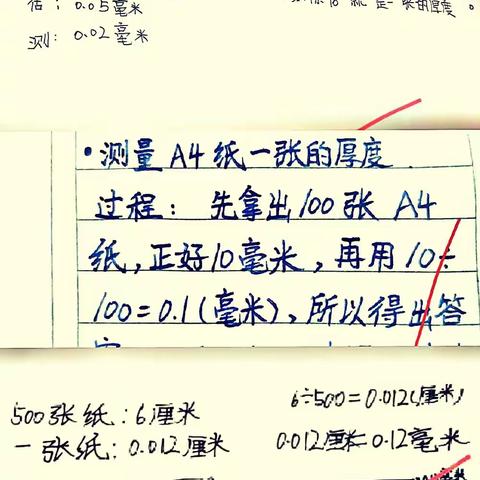 估：0.05毫米
测：0.02毫米
张的厚度。
•测量A4纸一张的厚度.
过程：先拿出100张A4
纸,正好10毫米,再用10÷
100=0.1(毫米),所以得出答
500张纸：6厘米
一张纸：0.012厘米
6÷500=0.012(厘米)
0.012厘米=0.12毫米